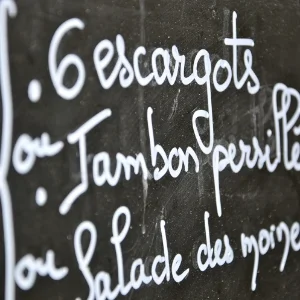 . 6 escargots
ou . Jambon persillé
ou Salade des moines